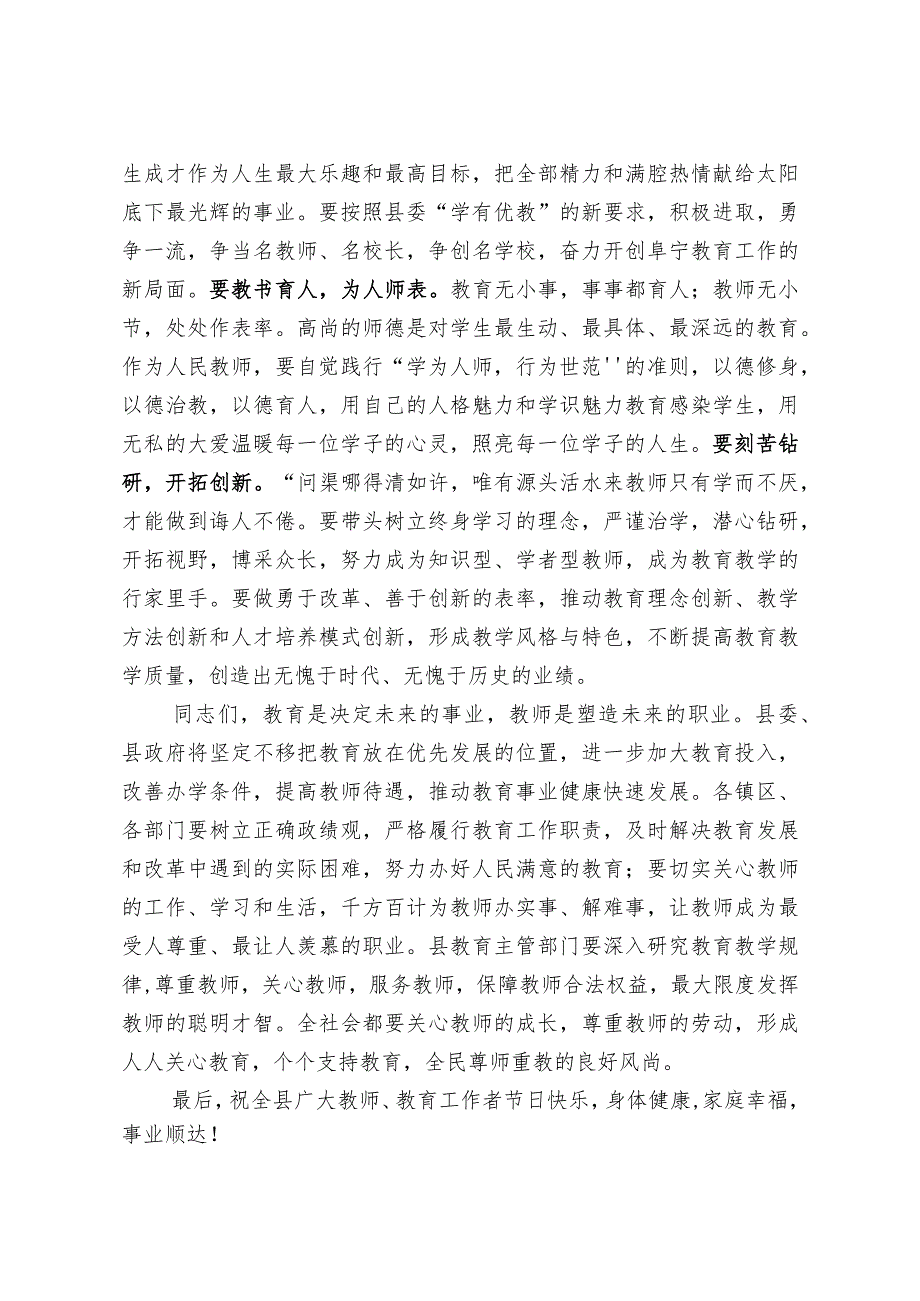 生成才作为人生最大乐趣和最高目标，把全部精力和满腔热情献给太阳
底下最光辉的事业。要按照县委“学有优教”的新要求，积极进取，勇
争一流，争当名教师、名校长，争创名学校，奋力开创阜宁教育工作的
新局面。要教书育人，为人师表。教育无小事，事事都育人；教师无小
节，处处作表率。高尚的师德是对学生最生动、最具体、最深远的教育。
作为人民教师，要自觉践行“学为人师，行为世范''的准则，以德修身，
以德治教，以德育人，用自己的人格魅力和学识魅力教育感染学生，用
无私的大爱温暖每一位学子的心灵，照亮每一位学子的人生。要刻苦钻
研，开拓创新。“问渠哪得清如许，唯有源头活水来教师只有学而不厌，
才能做到诲人不倦。要带头树立终身学习的理念，严谨治学，潜心钻研，
开拓视野，博采众长，努力成为知识型、学者型教师，成为教育教学的
行家里手。要做勇于改革、善于创新的表率，推动教育理念创新、教学
方法创新和人才培养模式创新，形成教学风格与特色，不断提高教育教
学质量，创造出无愧于时代、无愧于历史的业绩。
同志们，教育是决定未来的事业，教师是塑造未来的职业。县委、
县政府将坚定不移把教育放在优先发展的位置，进一步加大教育投入，
改善办学条件，提高教师待遇，推动教育事业健康快速发展。各镇区、
各部门要树立正确政绩观，严格履行教育工作职责，及时解决教育发展
和改革中遇到的实际困难，努力办好人民满意的教育；要切实关心教师
的工作、学习和生活，千方百计为教师办实事、解难事，让教师成为最
受人尊重、最让人羡慕的职业。县教育主管部门要深入研究教育教学规
律,尊重教师，关心教师，服务教师，保障教师合法权益，最大限度发挥
教师的聪明才智。全社会都要关心教师的成长，尊重教师的劳动，形成
人人关心教育，个个支持教育，全民尊师重教的良好风尚。
最后，祝全县广大教师、教育工作者节日快乐，身体健康,家庭幸福，
事业顺达！